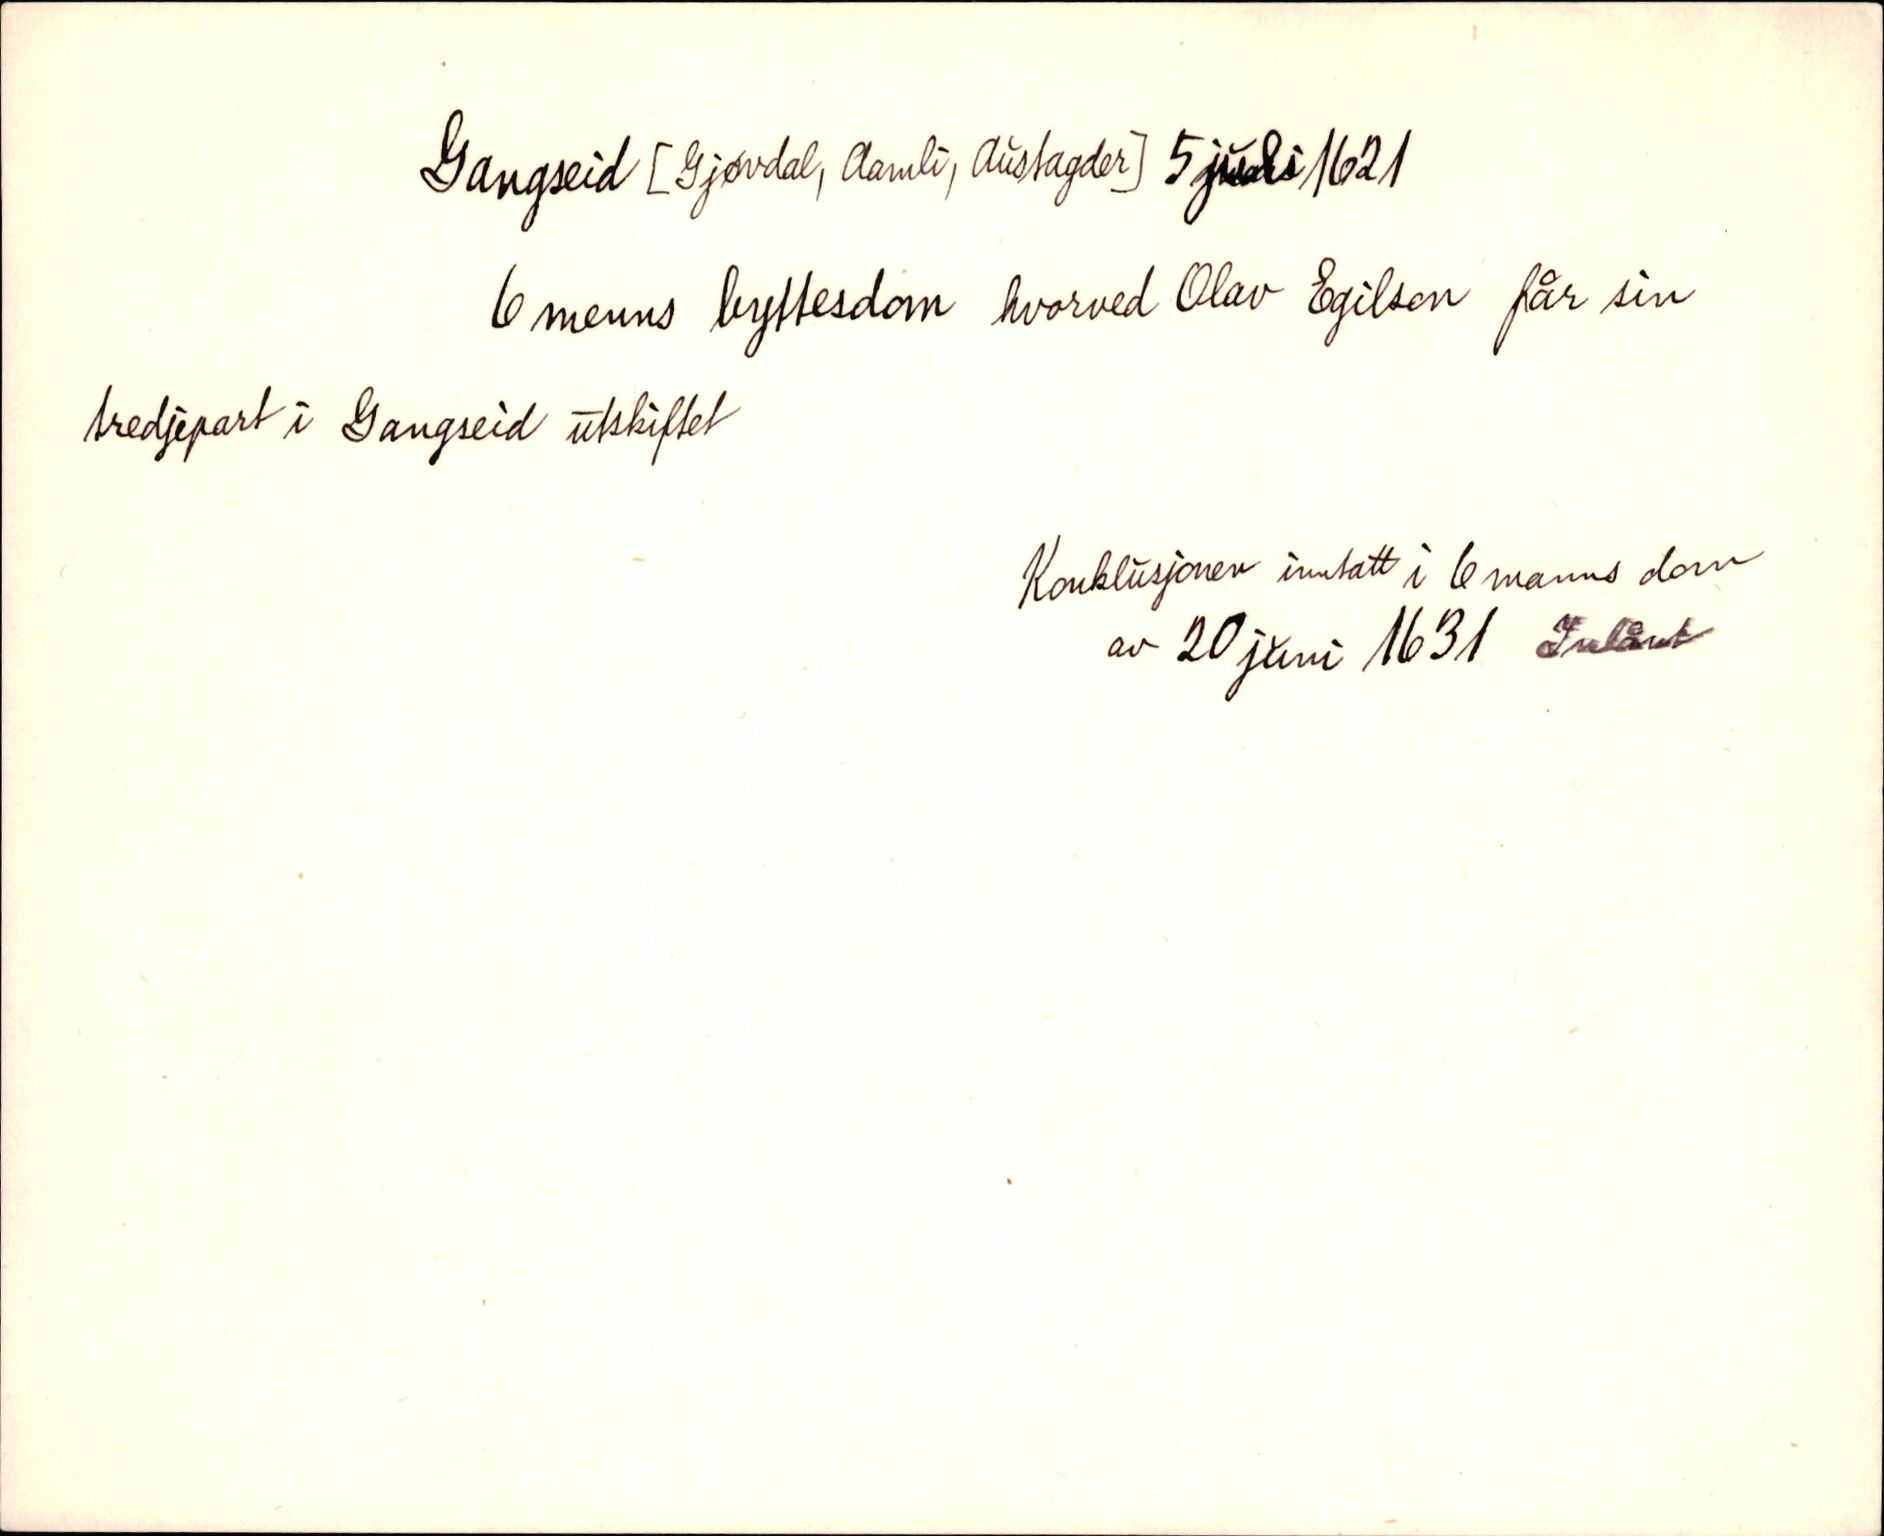 Gangseid [Gjøvdal, Aamli, Austagder] 5 juli 1621
6 menns byttesdom hvorved Olav Egilson får sin
tredjepart i Gangseid utskiftet
Konklusjonen inntatt i 6 manns dom
av 20 juni 1631 Innlånt